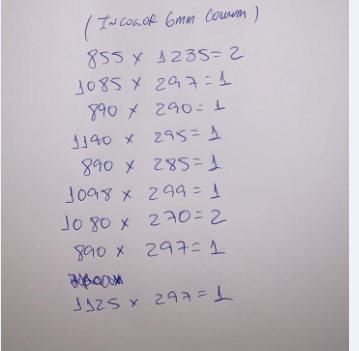 (INCOLOR 6mm COMUM)
855 x 1235 = 2
1085 x 297 = 1
890 x 290 = 1
1190 x 295 = 1
890 x 285 = 1
1098 x 299 = 1
1080 x 270 = 2
890 x 297 = 1
1125 x 297 = 1